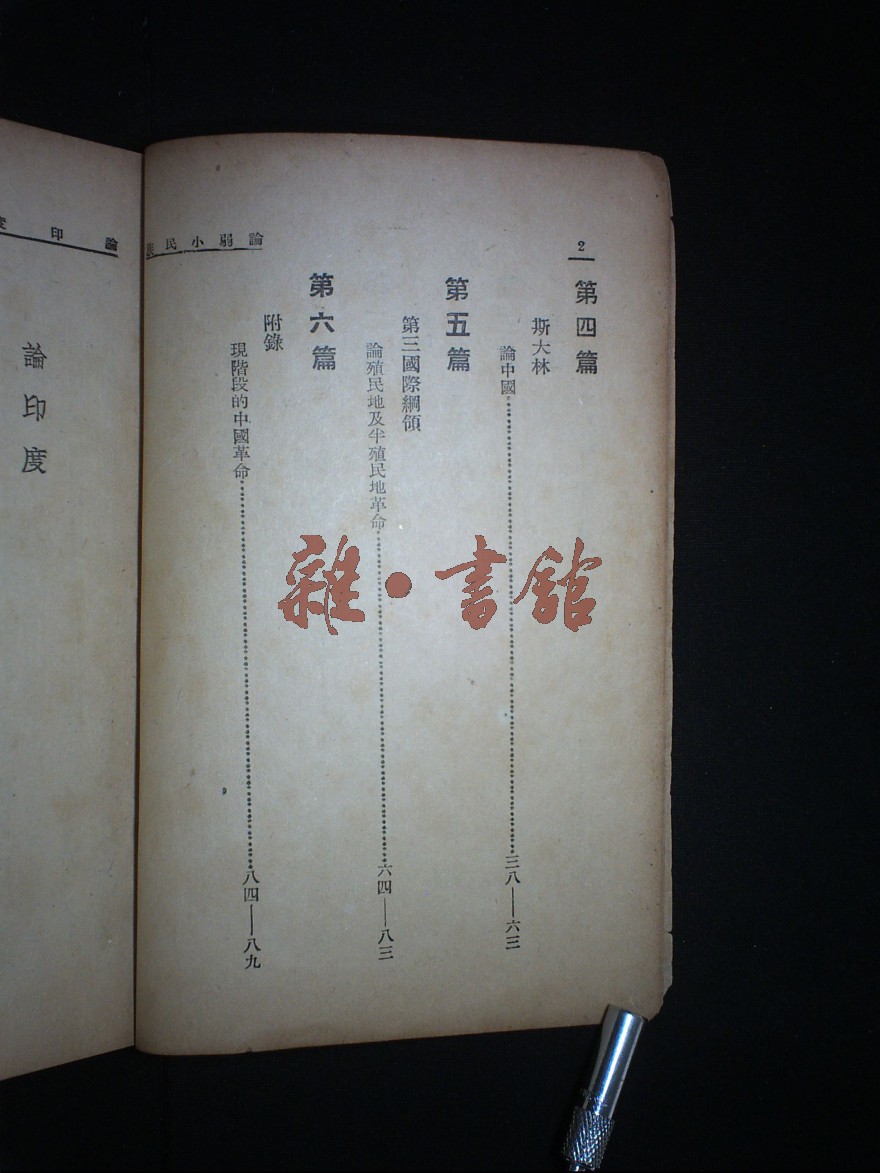 2
論弱小民族
第四篇
斯大林
論中國………三八——六三
第五篇
第三國際綱領
論殖民地及半殖民地革命………六四——八三
第六篇
附錄
現階段的中國革命………八四——八九
論印度
論印度
雜·書館